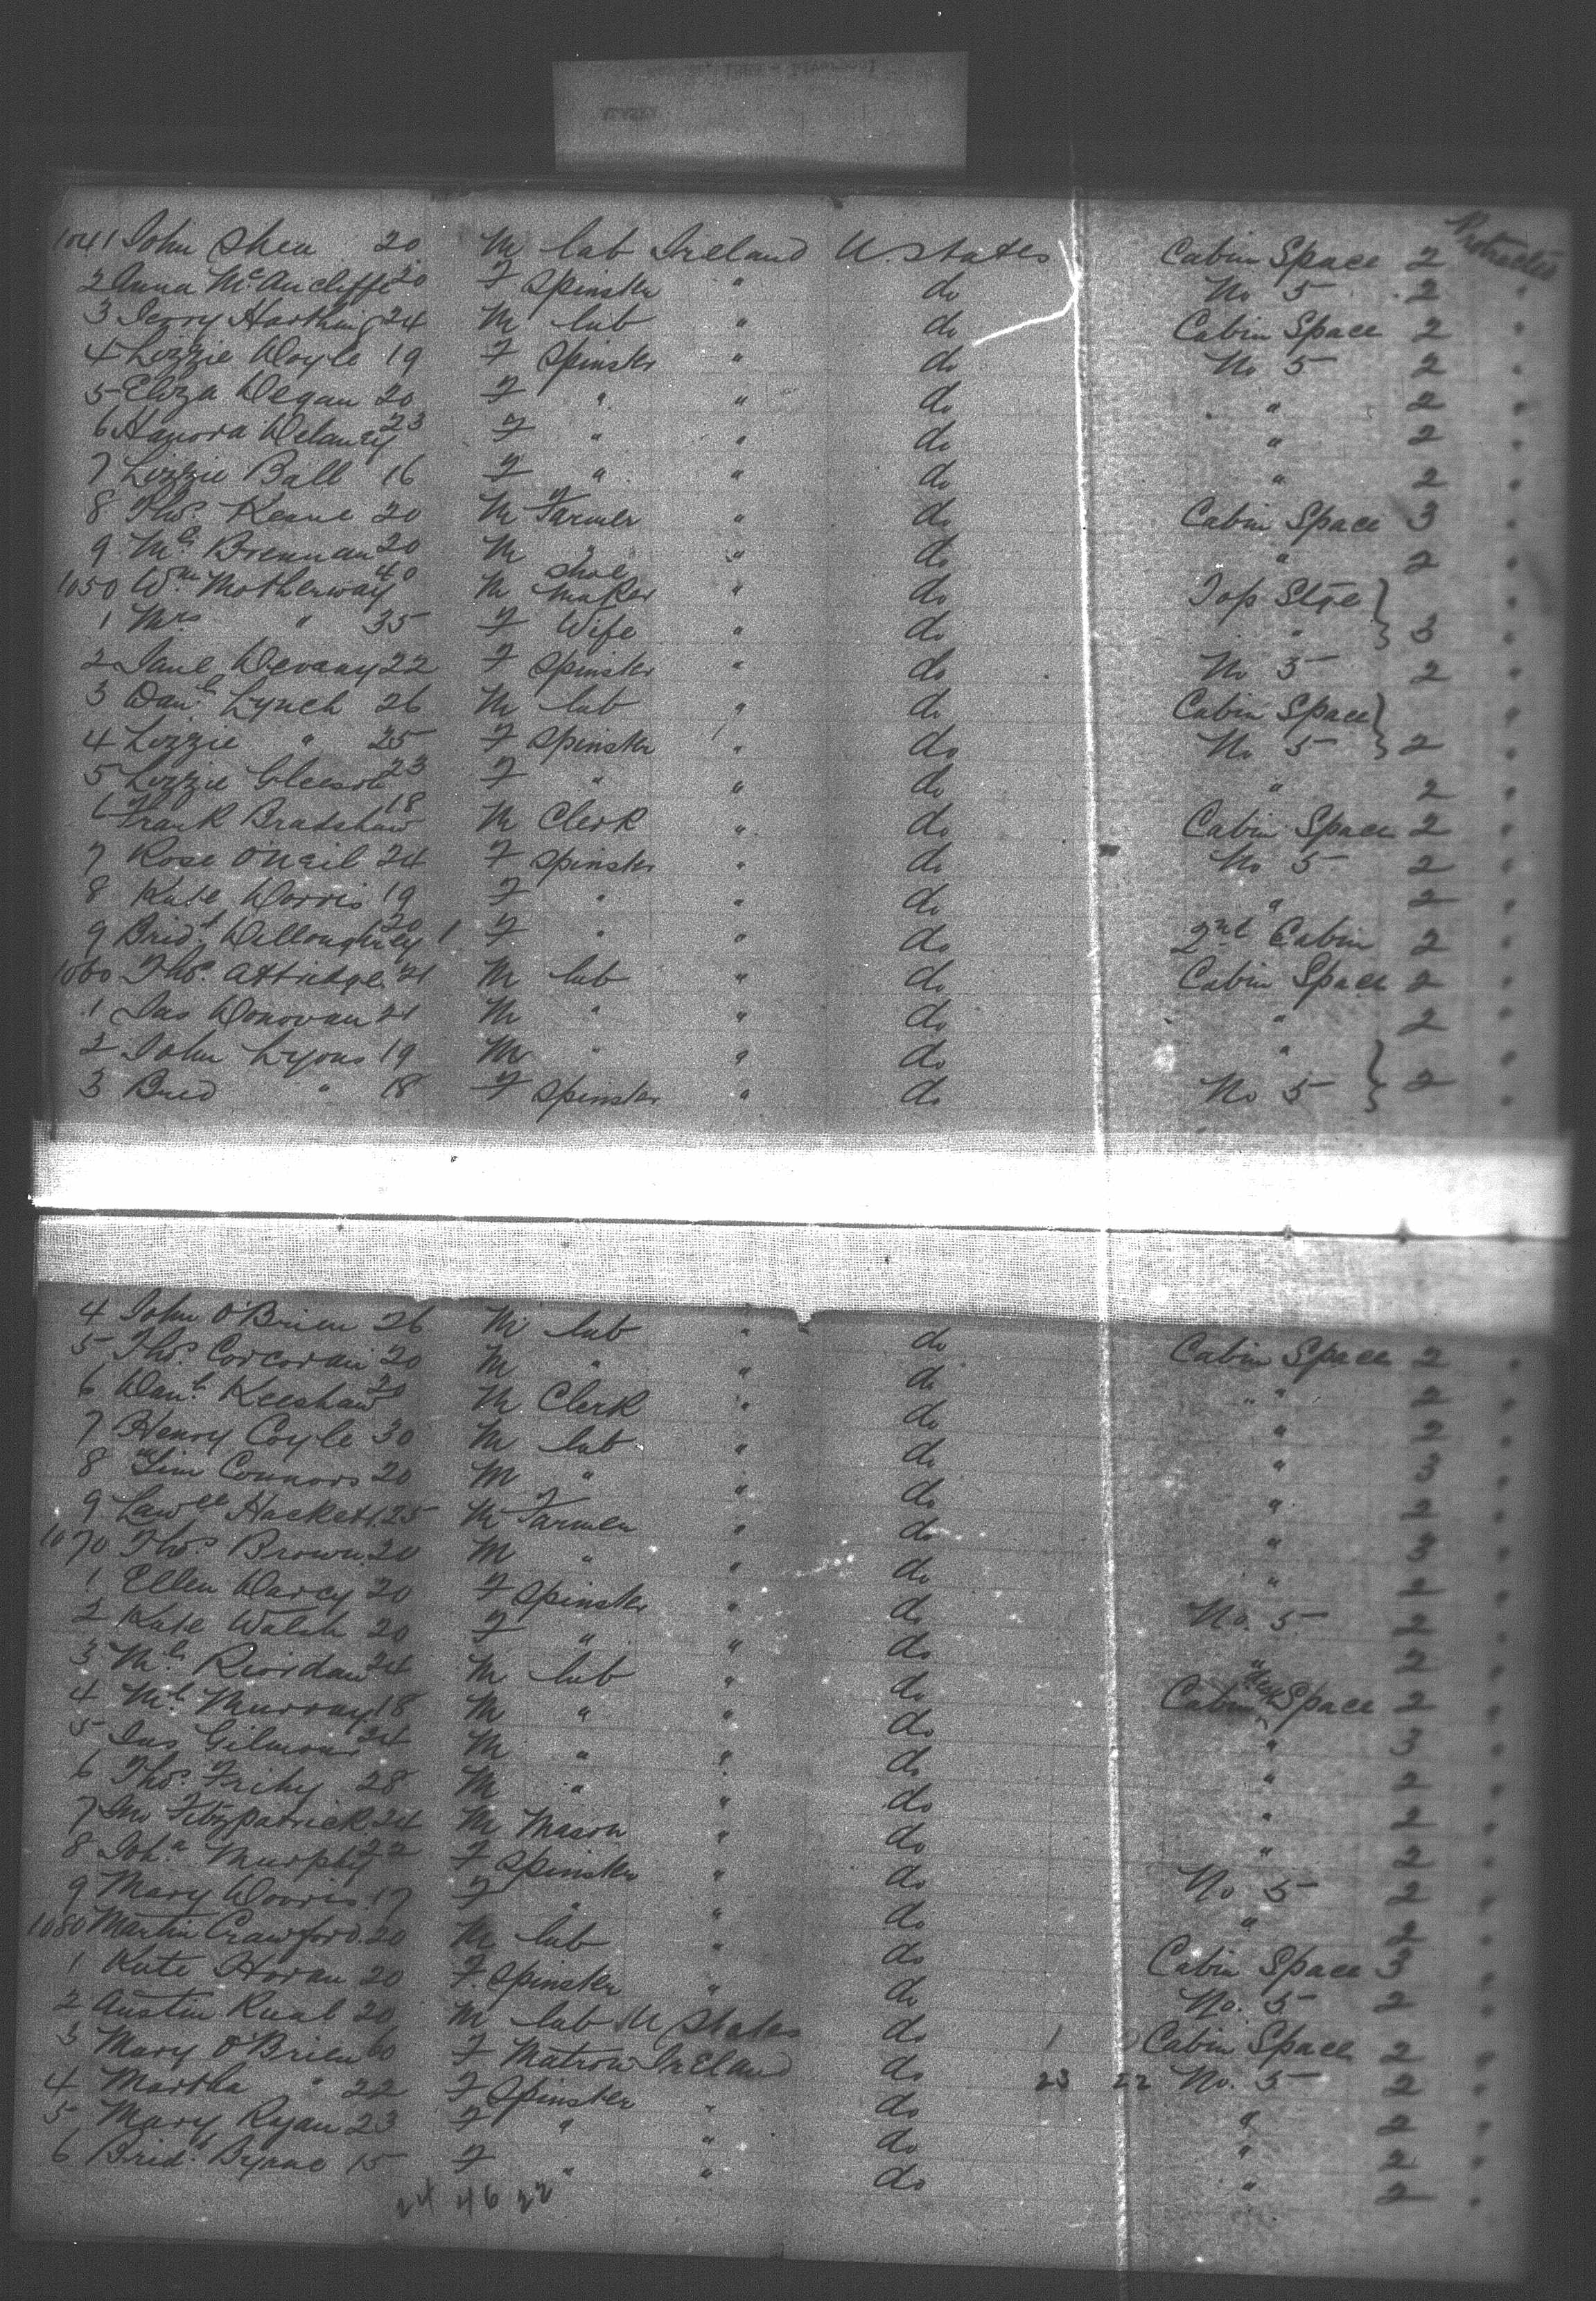 Protracted
1041 John Shea 20 M lab Ireland U. States Cabin Space 2
2 Anna McAucliffe 20 F Spinster " do No 5 2 "
3 Jerry Harthing 24 M lab " do Cabin Space 2 "
4 Lizzie Doyle 19 F Spinster " do No 5 2 "
5 Eliza Degan 20 F " " do " 2 "
6 Hanora Delaney 23 F " " do " 2 "
7 Lizzie Ball 16 F " " do " 2 "
8 Thos Keane 20 M Farmer " do Cabin Space 3 "
9 Ml Brennan 20 M " " do " 2 "
1050 Wm Motherway 40 M Shoe Maker " do Top Stge "
1 Mrs " 35 F Wife " do " 3 "
2 Jane Devany 22 F Spinster " do No 5 2 "
3 Danl Lynch 26 M lab " do Cabin Space "
4 Lizzie " 25 F Spinster " do No 5 2 "
5 Lizzie Gleeson 23 F " " do " 2 "
6 Frank Bradshaw 18 M Clerk " do Cabin Space 2 "
7 Rose O'Neil 24 F Spinster " do No 5 2 "
8 Kate Dorris 19 F " " do " 2 "
9 Bridt Delloughrey 20 1 F " " do 2nd Cabin 2 "
1060 Thos Attridge 21 M lab " do Cabin Space 2 "
1 Jas Donovan 21 M " " do " 2 "
2 John Lyons 19 M " " do " "
3 Brid " 18 F Spinster " do No 5 2 "
4 John O'Brien 26 M lab " do Cabin Space 2 "
5 Thos Corcoran 20 M " " do " " 2 "
6 Danl Keeshaw 20 M Clerk " do " 2 "
7 Henry Coyle 30 M lab " do " 3 "
8 Jim Connors 20 M " " do " 2 "
9 Lawce Hackett 25 M Farmer " do " 3 "
1070 Thos Brown 20 M " " do " 2 "
1 Ellen Darcy 20 F Spinster " do No. 5 2 "
2 Kate Walsh 20 F " " do " 2 "
3 Ml Riordan 24 M lab " do Cabin Space 2 "
4 Ml Murray 18 M " " do " 3 "
5 Jas Gilmour 24 M " " do " 2 "
6 Thos Frihy 28 M " " do " 2 "
7 Jno Fitzpatrick 24 M Mason " do " 2 "
8 Joha Murphy 22 F Spinster " do No 5 2 "
9 Mary Dorris 17 F " " do " 2 "
1080 Martin Crawford 20 M lab " do Cabin Space 3 "
1 Kate Horan 20 F. Spinster " do No. 5 2 "
2 Austin Rual 20 M lab U States do 1 Cabin Space 2 "
3 Mary O'Brien 60 F Matron Ireland do 23 22 No. 5 2 "
4 Martha " 22 F Spinster " do " 2 "
5 Mary Ryan 23 F " " do " 2 "
6 Bridt Byrne 15 F " " do " 2 "
24 46 22